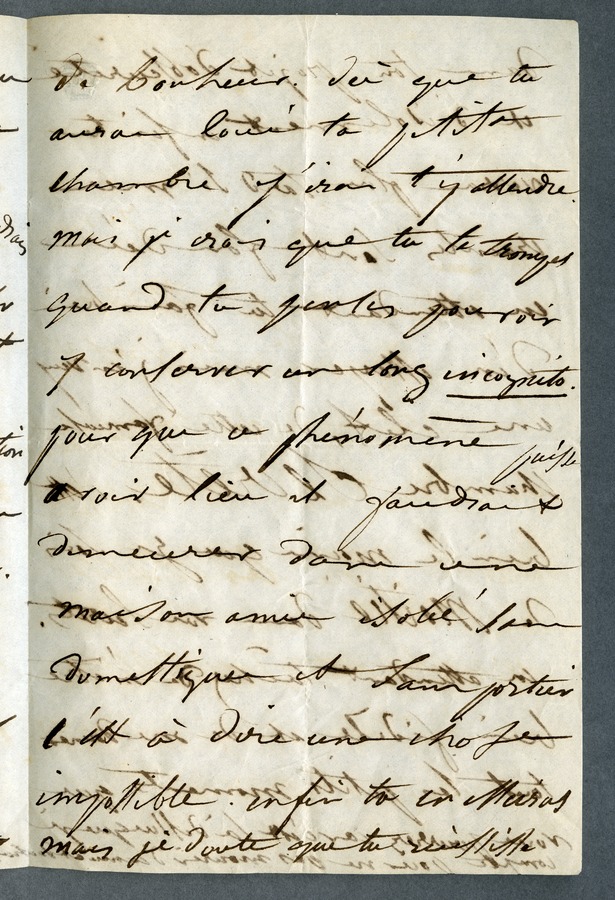 de bonheur. dès que tu
auras loué ta petite
chambre j'irai t'y attendre.
mais je crois que tu te trompes
quand tu penses pouvoir
y conserver un long incognito.
pour que ce phénomène puisse
avoir lieu il faudrait
demeurer dans une
maison amie isolé sans
domestiques et sans portier
c'est à dire une chose
impossible. enfin tu
mais je doute que tu réussisse